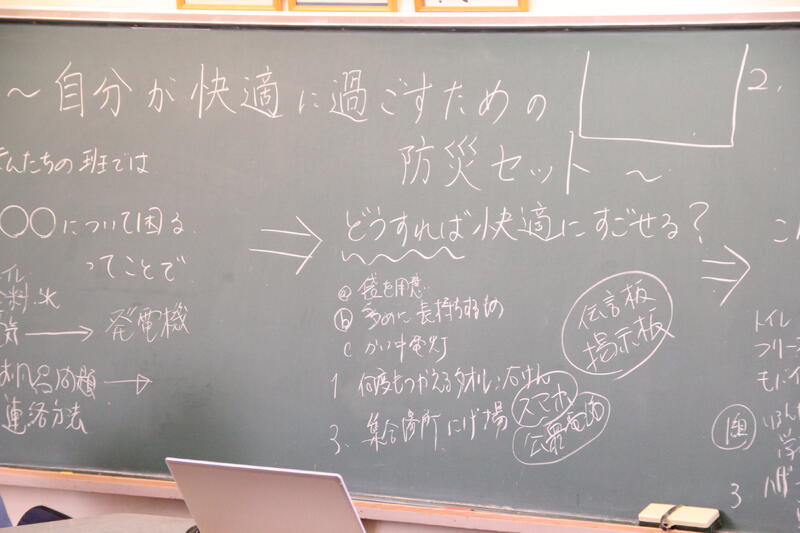 ～自分が快適に過ごすための
防災セット～
2.
たちの班では
○○について困る
ってことで
水
→ 発電機
問題 →
連絡方法
⇒
どうすれば快適にすごせる?
ⓐ 袋を用意
ⓑ 多めに長持ちするもの
c かい中電灯
1 何度もつかえるタオル:石けん
3. 集合場所 にげ場
スマホ
公衆電話
伝言板
掲示板
⇒
トイレ
フリー
モバイ
3